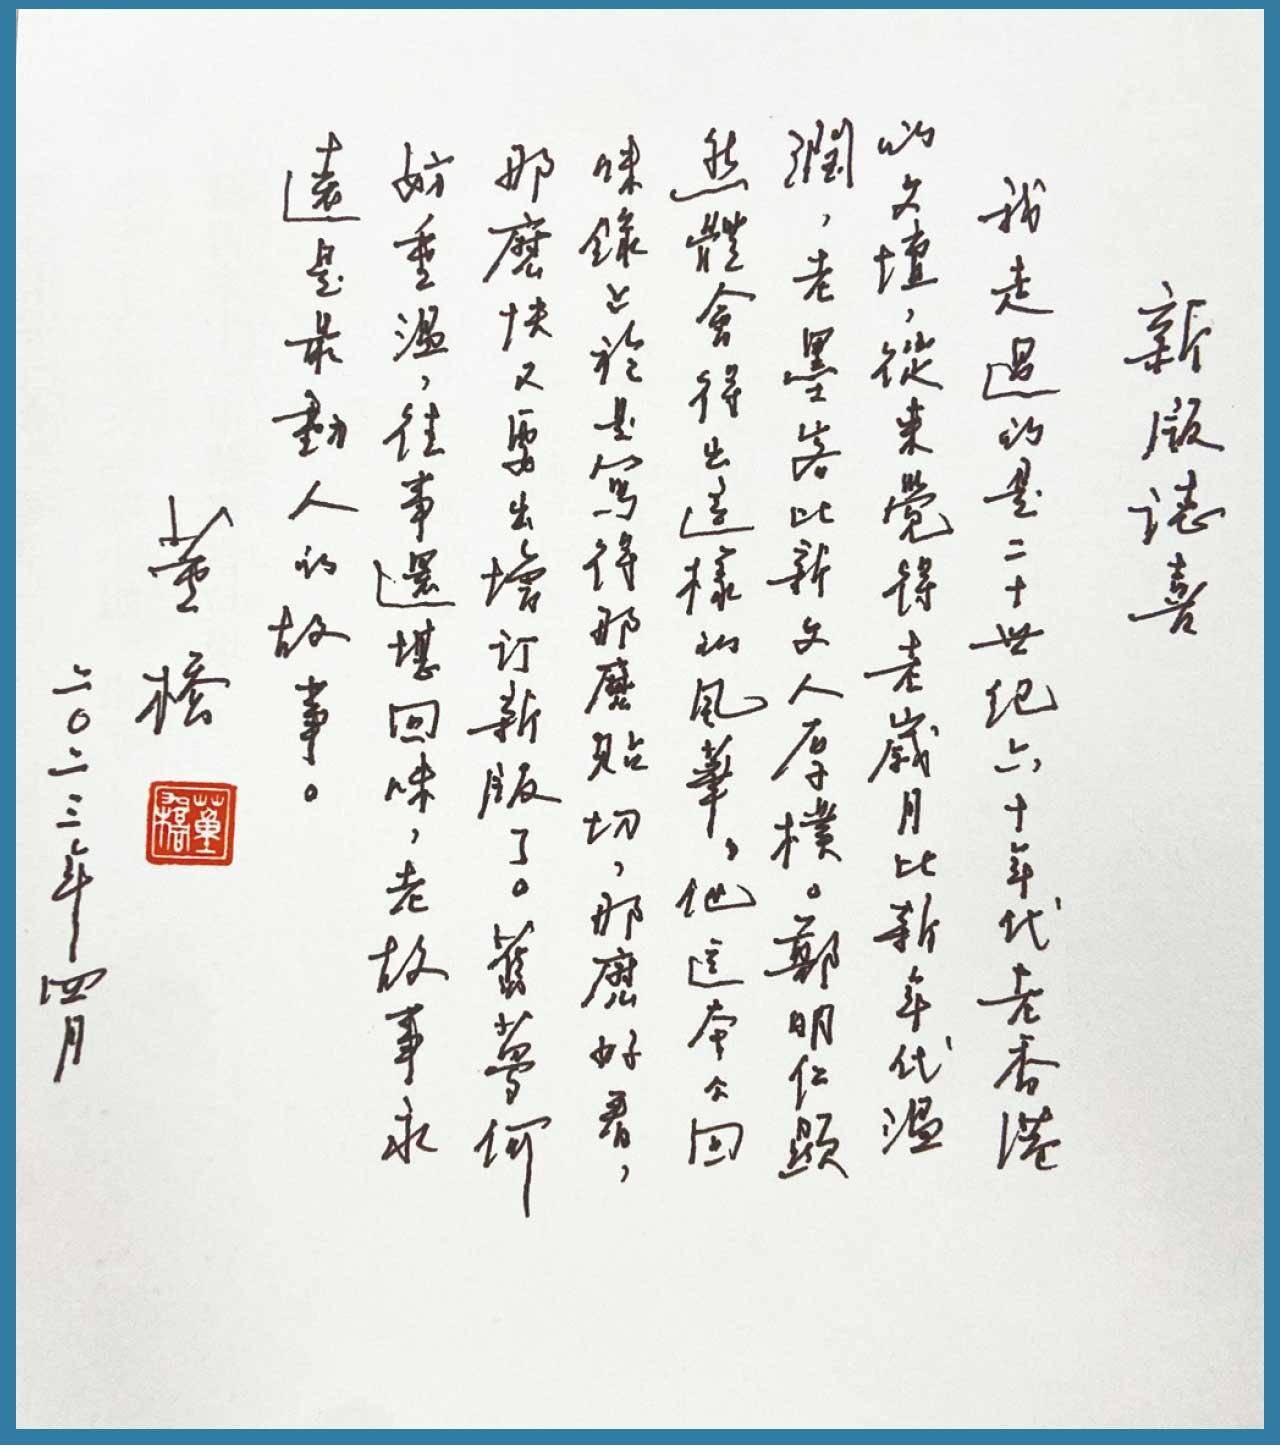 新版誌喜
我走過的是二十世紀六十年代老香港
的文壇，從來覺得老歲月比新年代溫
潤，老墨客比新文人厚樸。鄭明仁顯
然體會得出這樣的風華，他這本今回
味錄之於是寫得那麼貼切，那麼好看，
那麼快又要出增訂新版了。舊夢何
妨重溫，往事還堪回味，老故事永
遠是最動人的故事。
董橋
二〇二三年四月
董橋